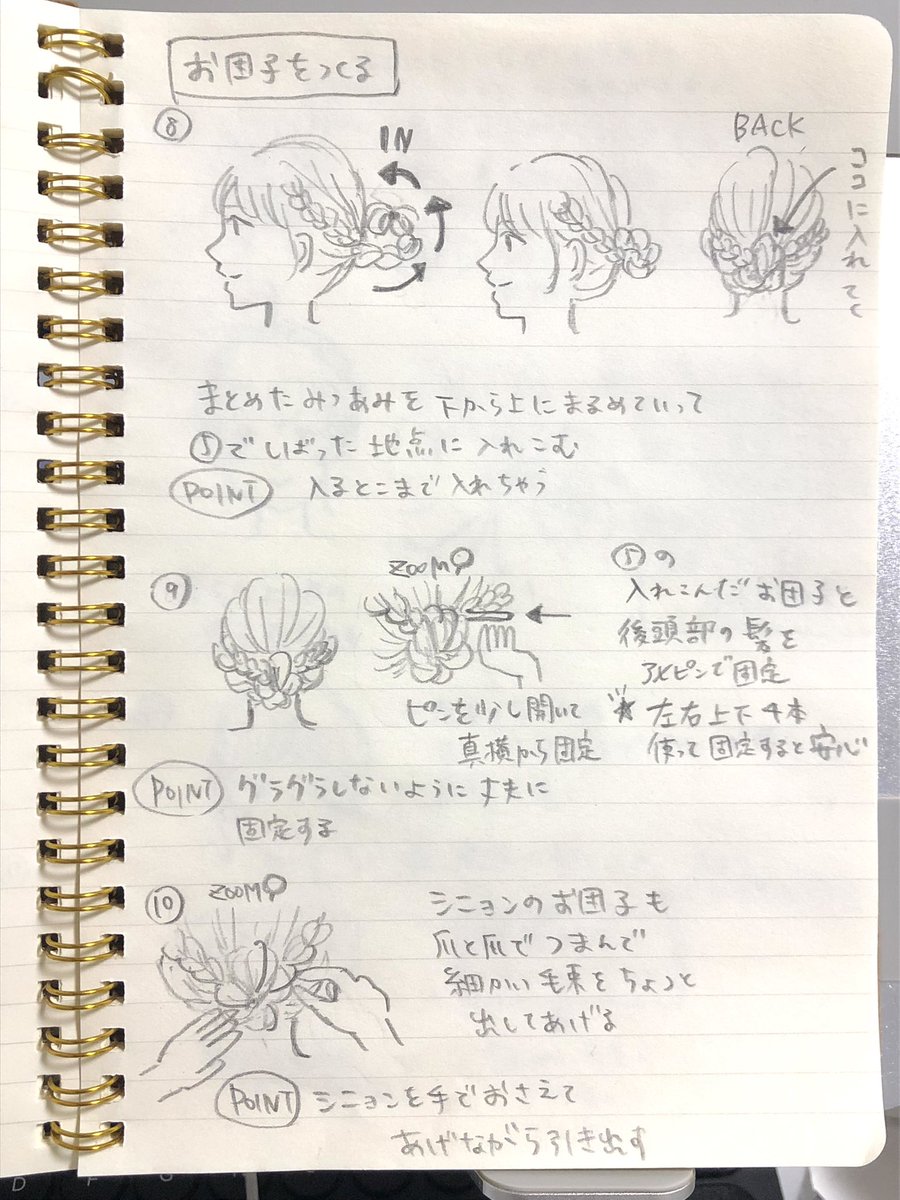 お団子をつくる
⑧
IN
BACK
ココに入れてく
まとめたみつあみを下から上にまるめていって
⑤でしばった地点に入れこむ
POINT 入るとこまで入れちゃう
⑨
ZOOM
⑤の
入れこんだお団子と
後頭部の髪を
アメピンで固定
ピンを少し開いて
真横から固定
左右上下4本
使って固定すると安心
POINT グラグラしないように丈夫に
固定する
⑩
ZOOM
シニヨンのお団子も
爪と爪でつまんで
細かい毛束をちょっと
出してあげる
POINT シニヨンを手でおさえて
あげながら引き出す
D F G